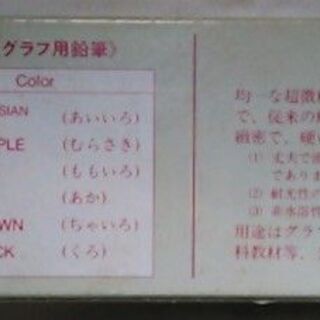 グラフ用鉛筆》
Color
SIAN (あいいろ)
PLE (むらさき)
(ももいろ)
(あか)
WN (ちゃいろ)
CK (くろ)
均一な超微
で、従来の
緻密で、硬
(1) 丈夫で
であります
(2) 耐光性の
(3) 非水溶性
用途はグラ
科教材等、